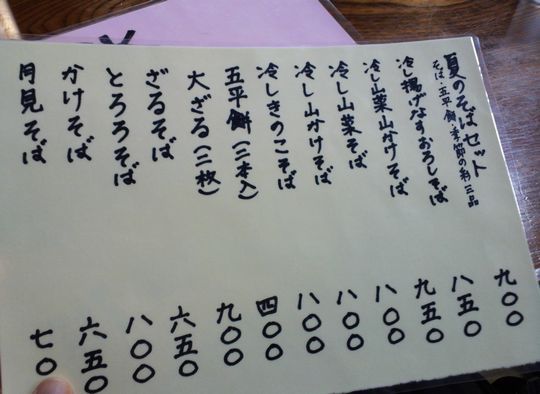 夏のそばセット 九〇〇
そば・五平餅・季節の彩三品
冷し揚げなすおろしそば 八五〇
冷し山菜山かけそば 九五〇
冷し山菜そば 八〇〇
冷し山かけそば 八〇〇
冷しきのこそば 八〇〇
五平餅(二本入) 四〇〇
大ざる(二枚) 九〇〇
ざるそば 六五〇
とろろそば 八〇〇
かけそば 六五〇
月見そば 七〇